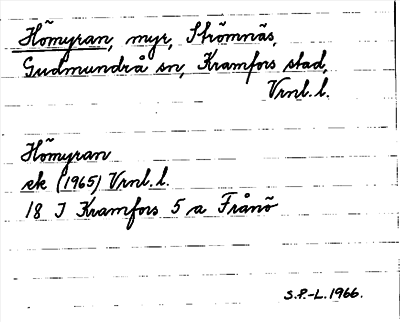 Hömyran, myr, Strömnäs,
Gudmundrå sn, Kramfors stad,
Vrnl. l.
Hömyran
ek (1965) Vrnl. l.
18 J Kramfors 5 a Frånö
S.P.-L. 1966.